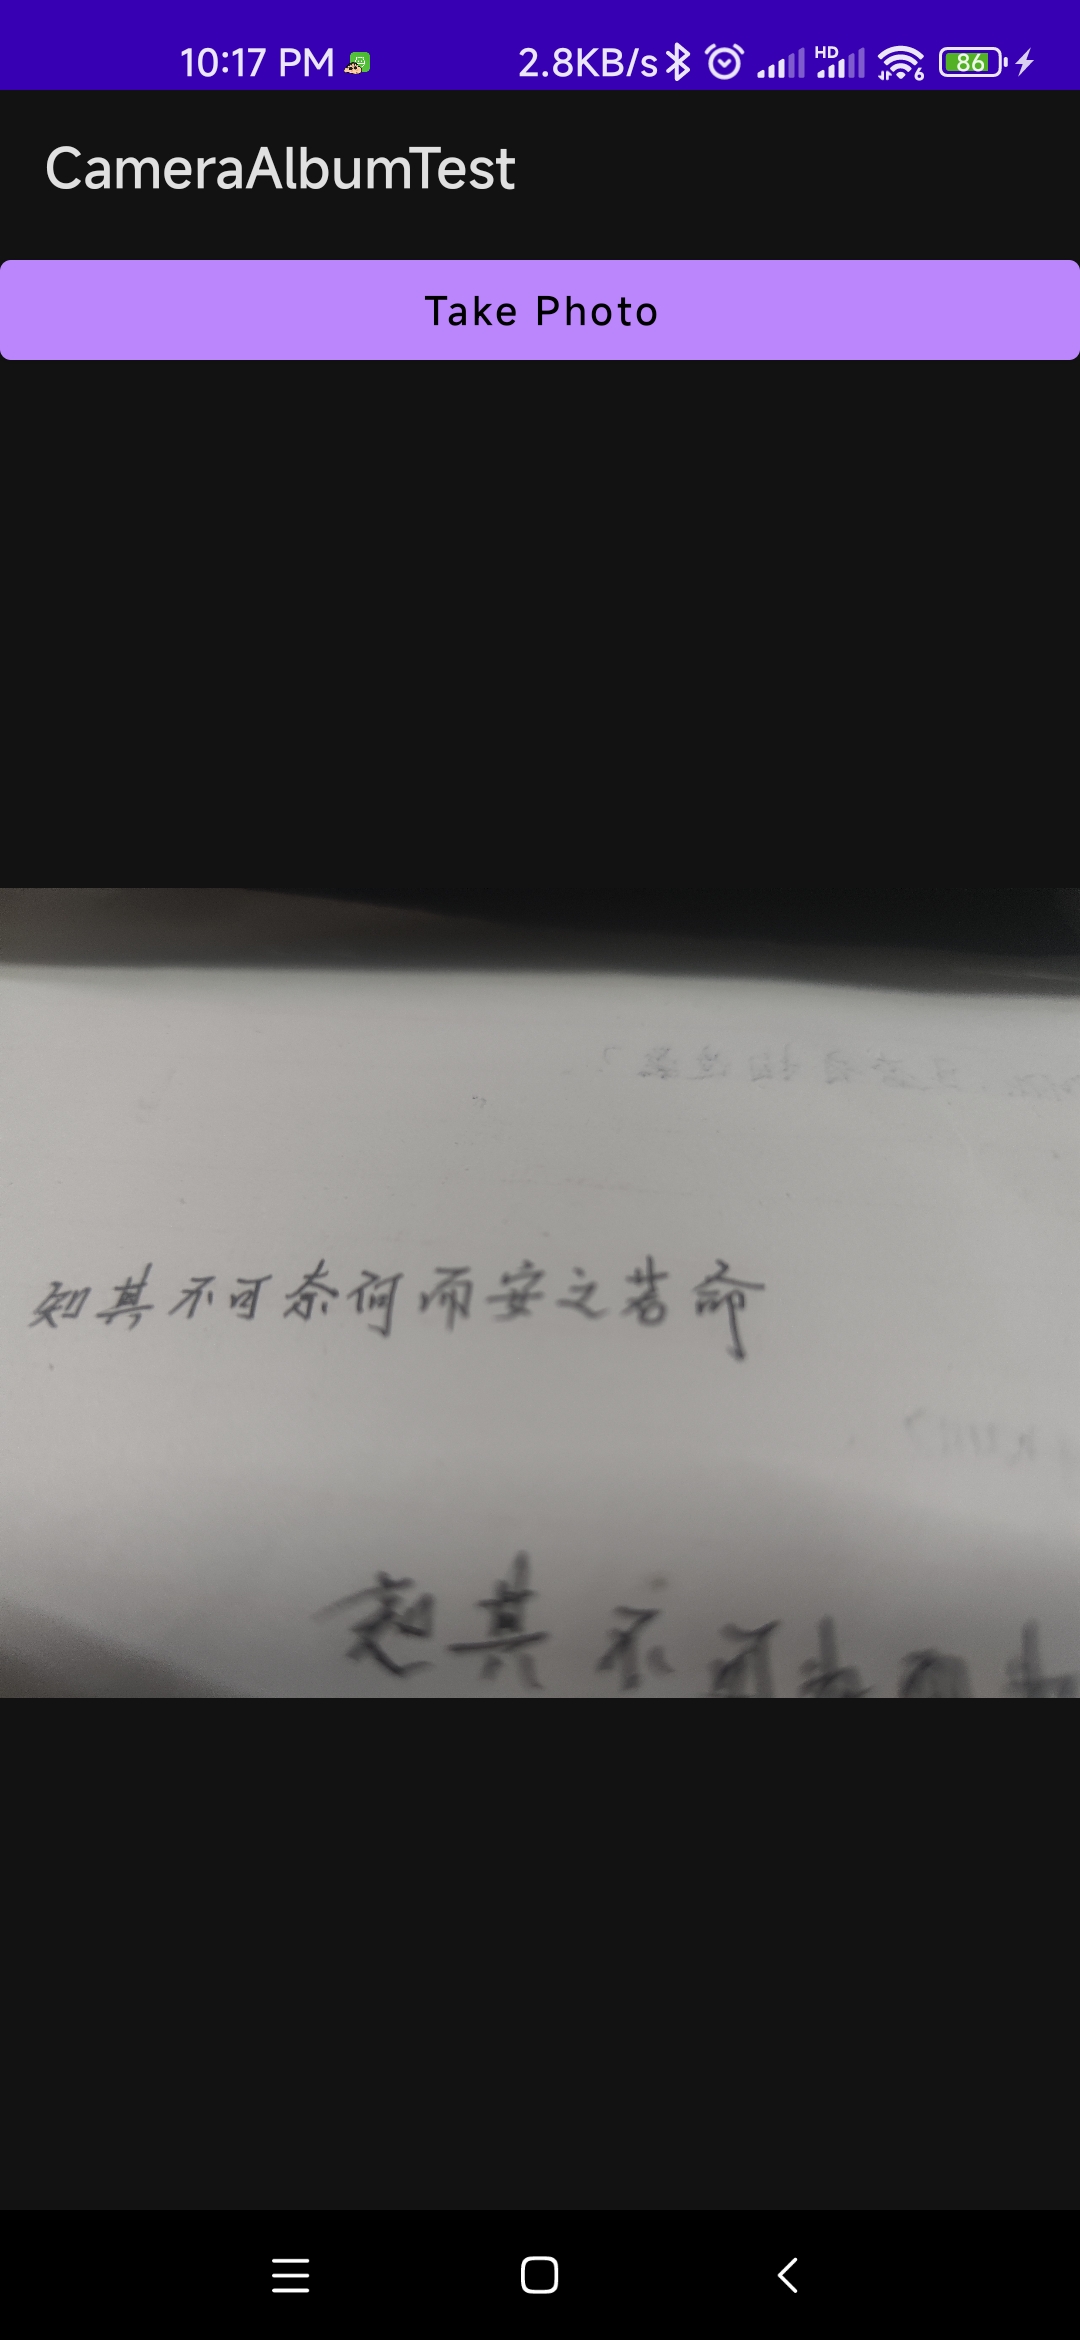 10:17 PM 2.8KB/s HD 6 86
CameraAlbumTest
Take Photo
知其不可奈何而安之若命
其不可